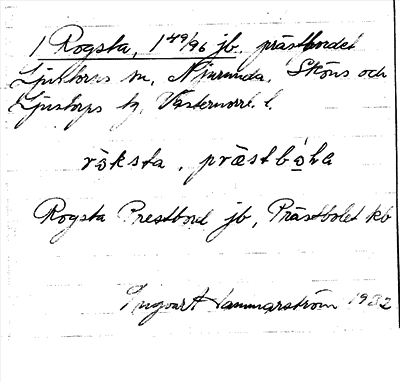 1 Rogsta, 1 49/96 jb. prästbordet
Ljustorps sn, Njurunda, Sköns och
Ljustorps tg, Västernorrl. l.
ròksta, præstbòḷa
Rogsta Prestbord jb, Prästbolet kb
Ingvart Hammarström 1932